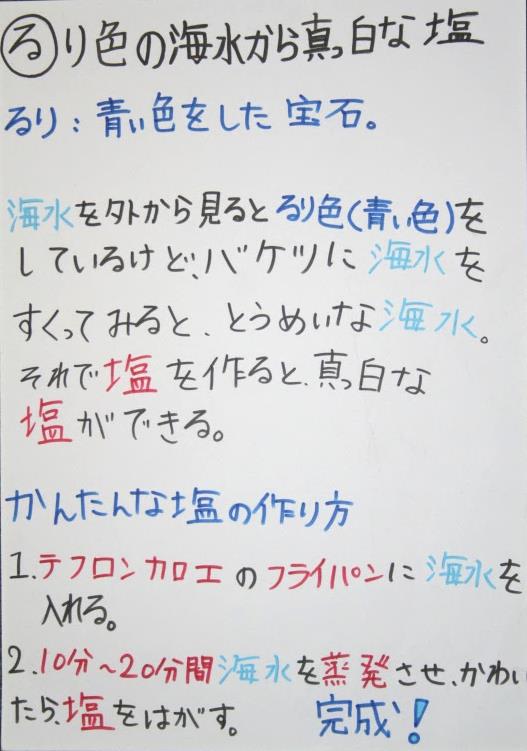 るり色の海水から真っ白な塩
るり：青い色をした宝石。
海水を外から見るとるり色(青い色)を
しているけど、バケツに海水を
すくってみると、とうめいな海水。
それで塩を作ると、真っ白な
塩ができる。
かんたんな塩の作り方
1.テフロンカロエのフライパンに海水を
入れる。
2.10分～20分間海水を蒸発させ、かわい
たら、塩をはがす。 完成！